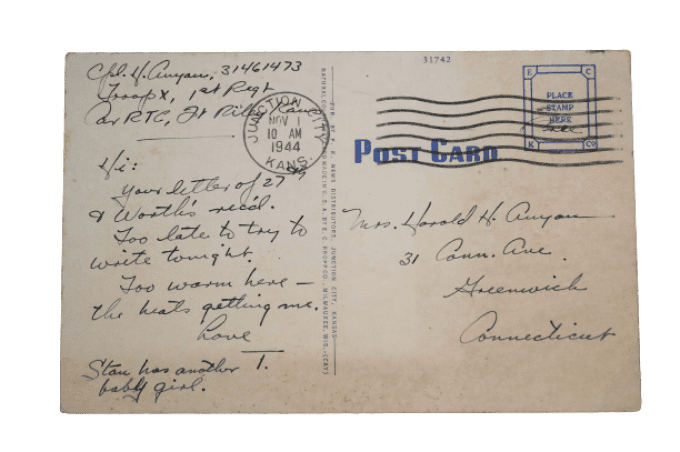 Cpl. H. Anyan, 31461473
Troop X, 1st Regt
Cav RTC, Ft Riley Kans
Hi:
Your letter of 27th
& Worth's rec'd.
Too late to try to
write tonight.
Too warm here –
the heats getting me.
Love
T.
Stan has another
baby girl.
JUNCTION CITY
NOV 1
10 AM
1944
KANS.
31742
E C
PLACE
STAMP
HERE
K Co
Free
POST CARD
Mrs. Harold H. Anyan
31 Conn. Ave.
Greenwich
Connecticut
NEWS DISTRIBUTORS, JUNCTION CITY, KANSAS
E. C. KROPP CO., MILWAUKEE, WIS.